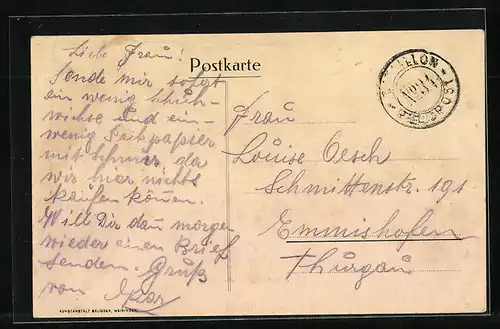 Postkarte
Liebe Frau!
Sende mir sofort
ein wenig Schuh-
wichse und ein
wenig Packpapier
mit Schnur, da
wir hier nichts
kaufen können.
Will Dir dann morgen
wieder einen Brief
senden. Gruß
von
Frau
Louise Oesch
Schmittenstr. 191
Emmishofen
Thurgau
KUNSTANSTALT BRÜGGER, MEIRINGEN